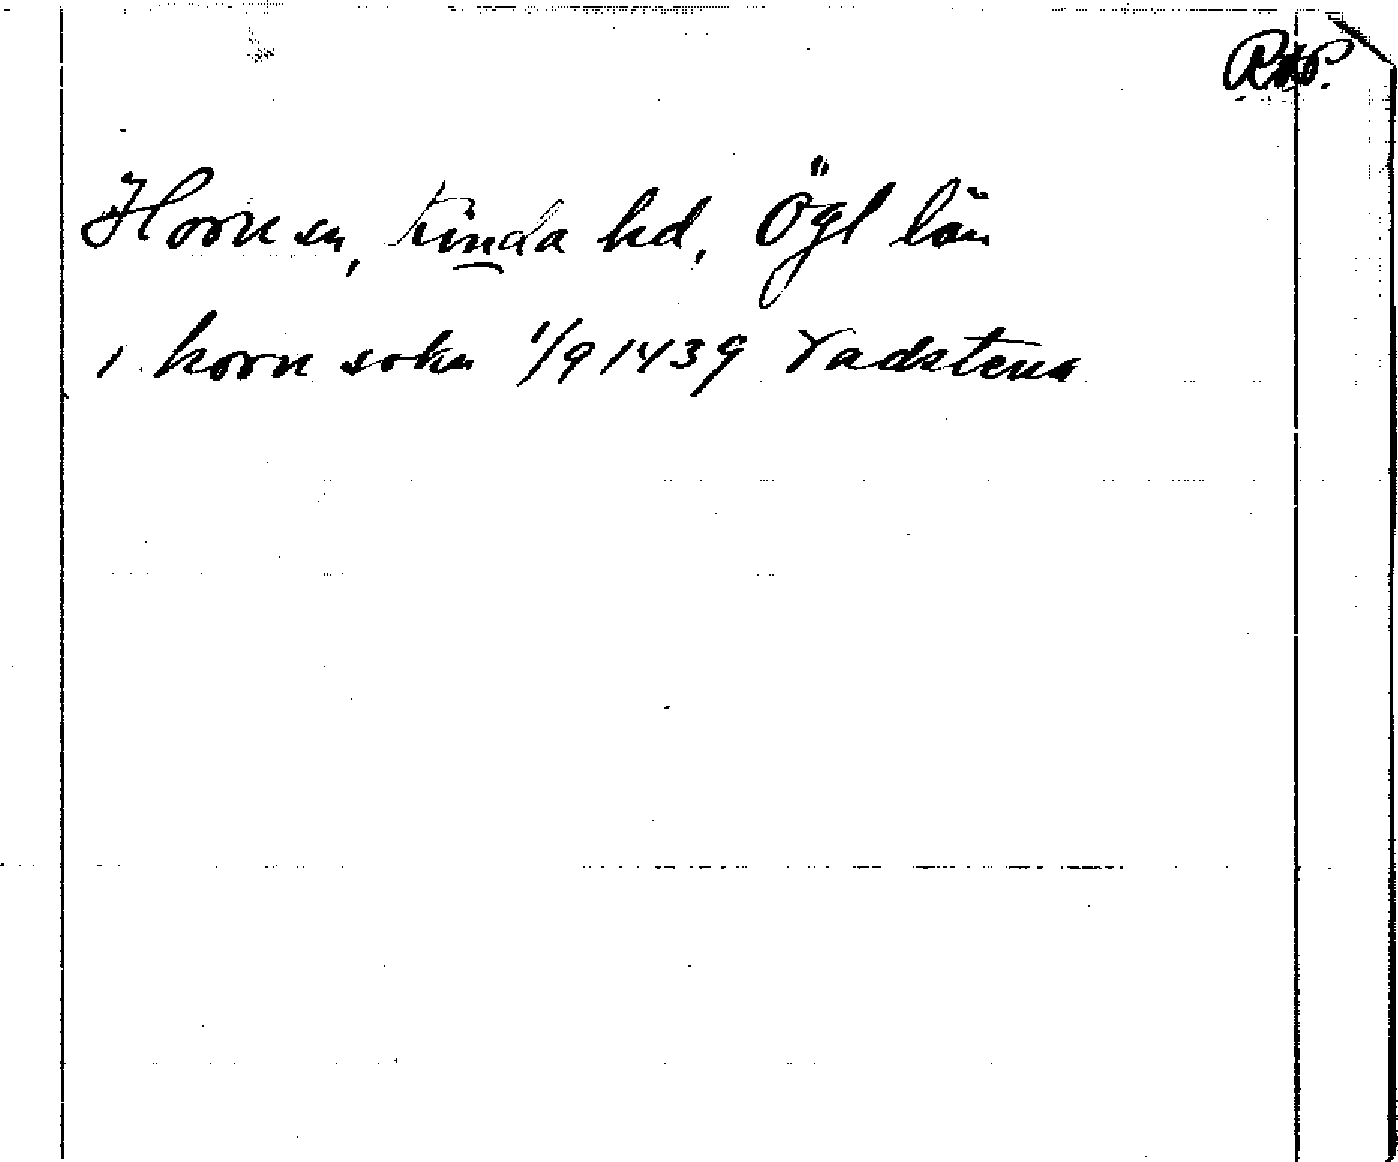 Horn sn, Kinda hd, Ögl län
i horn sokn 1/9 1439 Vadstena